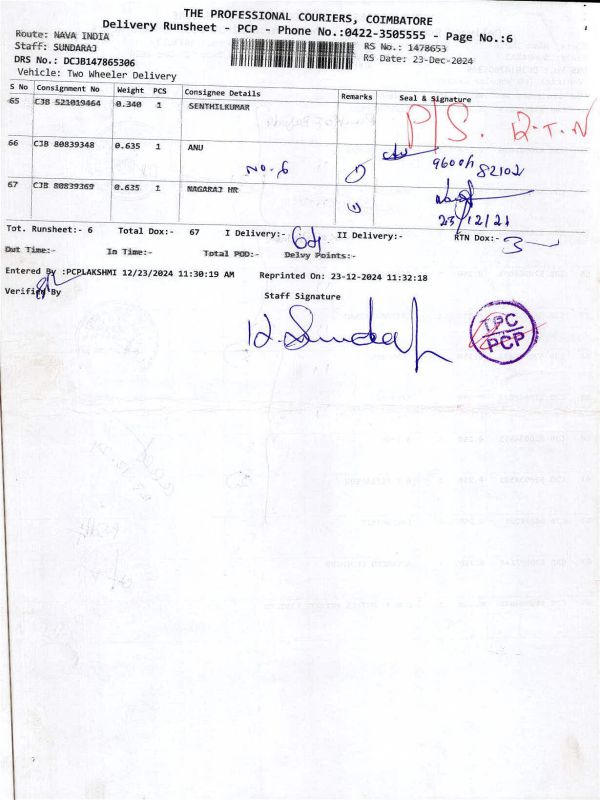 THE PROFESSIONAL COURIERS, COIMBATORE
Delivery Runsheet - PCP - Phone No.:0422-3505555 - Page No.:6
Route: NAVA INDIA
Staff: SUNDARAJ
RS No.: 1478653
DRS No.: DCJB147865306
RS Date: 23-Dec-2024
Vehicle: Two Wheeler Delivery
S No Consignment No Weight PCS Consignee Details Remarks Seal & Signature
65 CJB 521019464 0.340 1 SENTHILKUMAR P/S. R.T.N
66 CJB 80839348 0.635 1 ANU
No. 6 1 96004 82102
67 CJB 80839369 0.635 1 NAGARAJ HR
23/12/21
Tot. Runsheet:- 6 Total Dox:- 67 I Delivery:- 64 II Delivery:- RTN Dox:- 3
Out Time:- In Time:- Total POD:- Delvy Points:-
Entered By :PCPLAKSHMI 12/23/2024 11:30:19 AM Reprinted On: 23-12-2024 11:32:18
Verified By Staff Signature
TPC
PCP